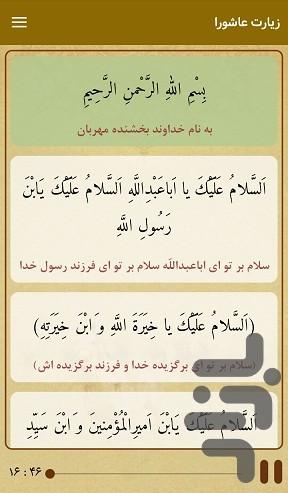 زیارت عاشورا
بِسْمِ اللَّهِ الرَّحْمنِ الرَّحِیمِ
به نام خداوند بخشنده مهربان
اَلسَّلامُ عَلَیْکَ یا اَباعَبْدِاللَّهِ اَلسَّلامُ عَلَیْکَ یَابْنَ
رَسُولِ اللَّهِ
سلام بر تو ای اباعبداللَه سلام بر تو ای فرزند رسول خدا
(اَلسَّلامُ عَلَیْکَ یا خِیَرَةَ اللَّهِ وَ ابْنَ خِیَرَتِهِ)
(سلام بر تو ای برگزیده خدا و فرزند برگزیده اش)
اَلسَّلامُ عَلَیْکَ یَابْنَ اَمیرِالْمُؤْمِنینَ وَ ابْنَ سَیِّدِ
۱۶ : ۴۶
بازار